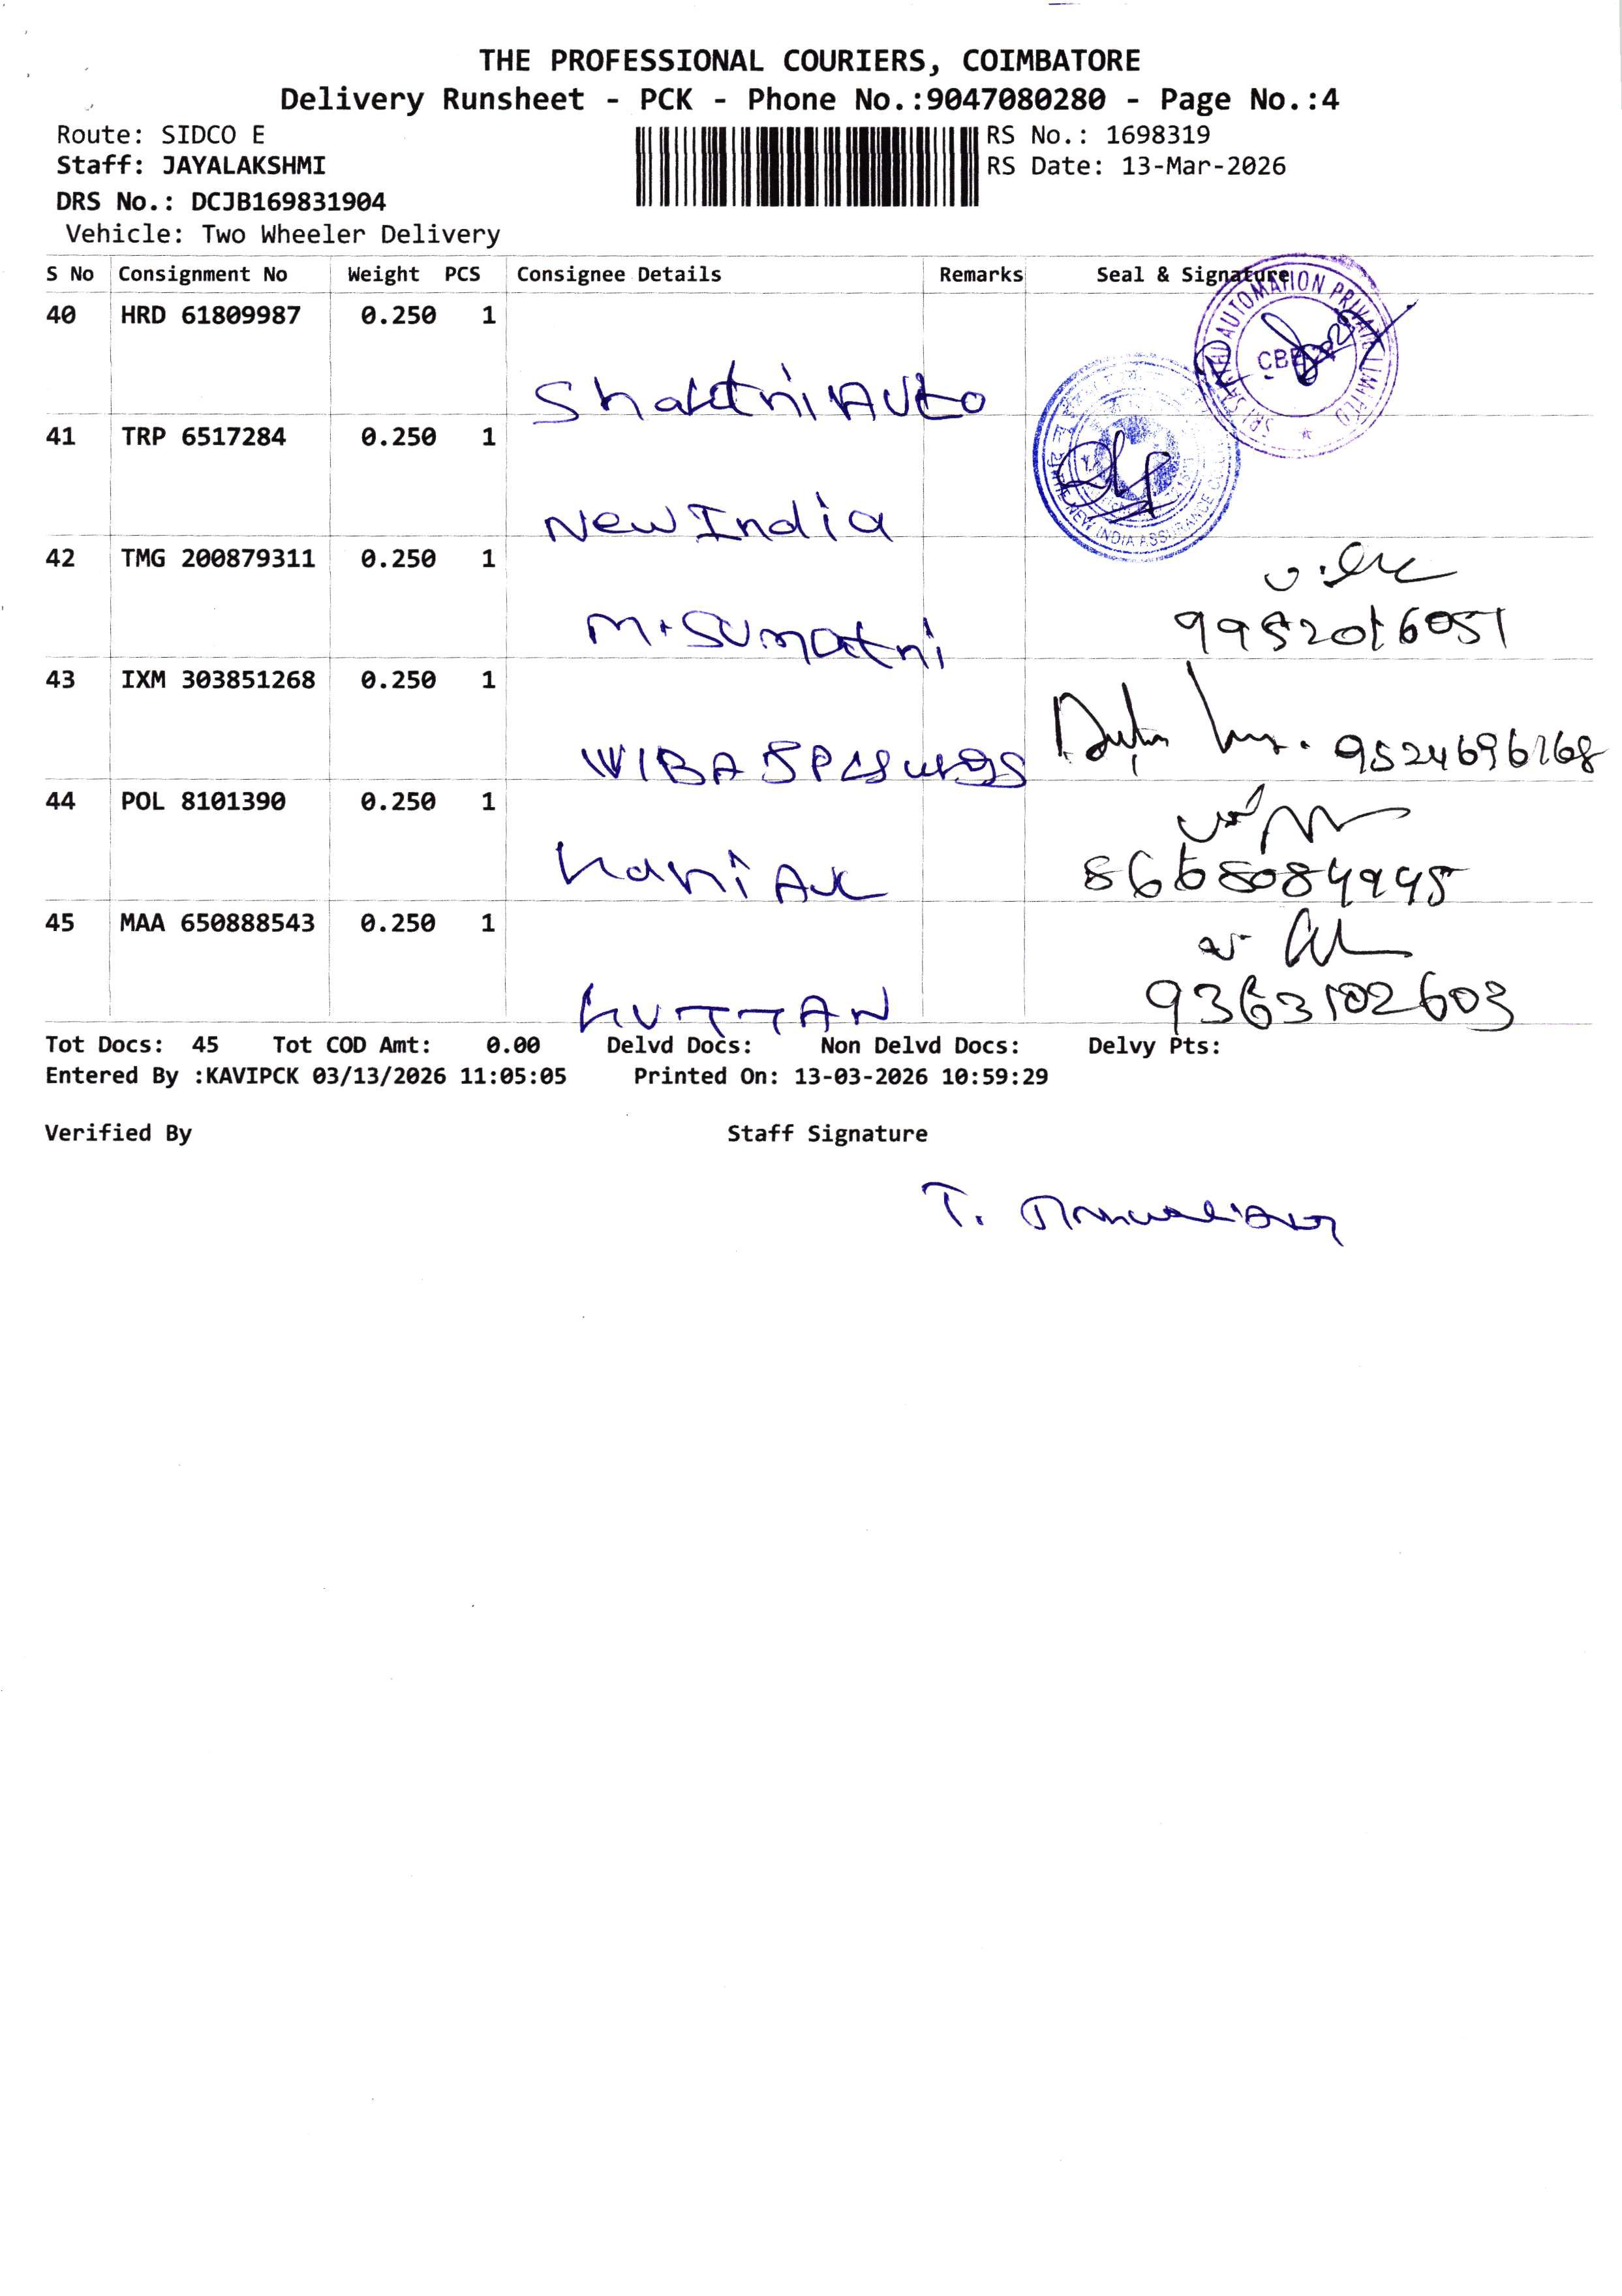 THE PROFESSIONAL COURIERS, COIMBATORE
Delivery Runsheet - PCK - Phone No.:9047080280 - Page No.:4
Route: SIDCO E
RS No.: 1698319
Staff: JAYALAKSHMI
RS Date: 13-Mar-2026
DRS No.: DCJB169831904
Vehicle: Two Wheeler Delivery
S No Consignment No Weight PCS Consignee Details Remarks Seal & Signature
40 HRD 61809987 0.250 1
Shakthi Auto
SRI SAKTHI AUTOMATION PRIVATE LIMITED
41 TRP 6517284 0.250 1
New India
THE NEW INDIA ASSURANCE CO.
42 TMG 200879311 0.250 1
M. Sumathi
9952016051
43 IXM 303851268 0.250 1
WIBA
9524696168
44 POL 8101390 0.250 1
45 MAA 650888543 0.250 1
KUTTAN
9363102603
Tot Docs: 45 Tot COD Amt: 0.00 Delvd Docs: Non Delvd Docs: Delvy Pts:
Entered By :KAVIPCK 03/13/2026 11:05:05 Printed On: 13-03-2026 10:59:29
Verified By Staff Signature